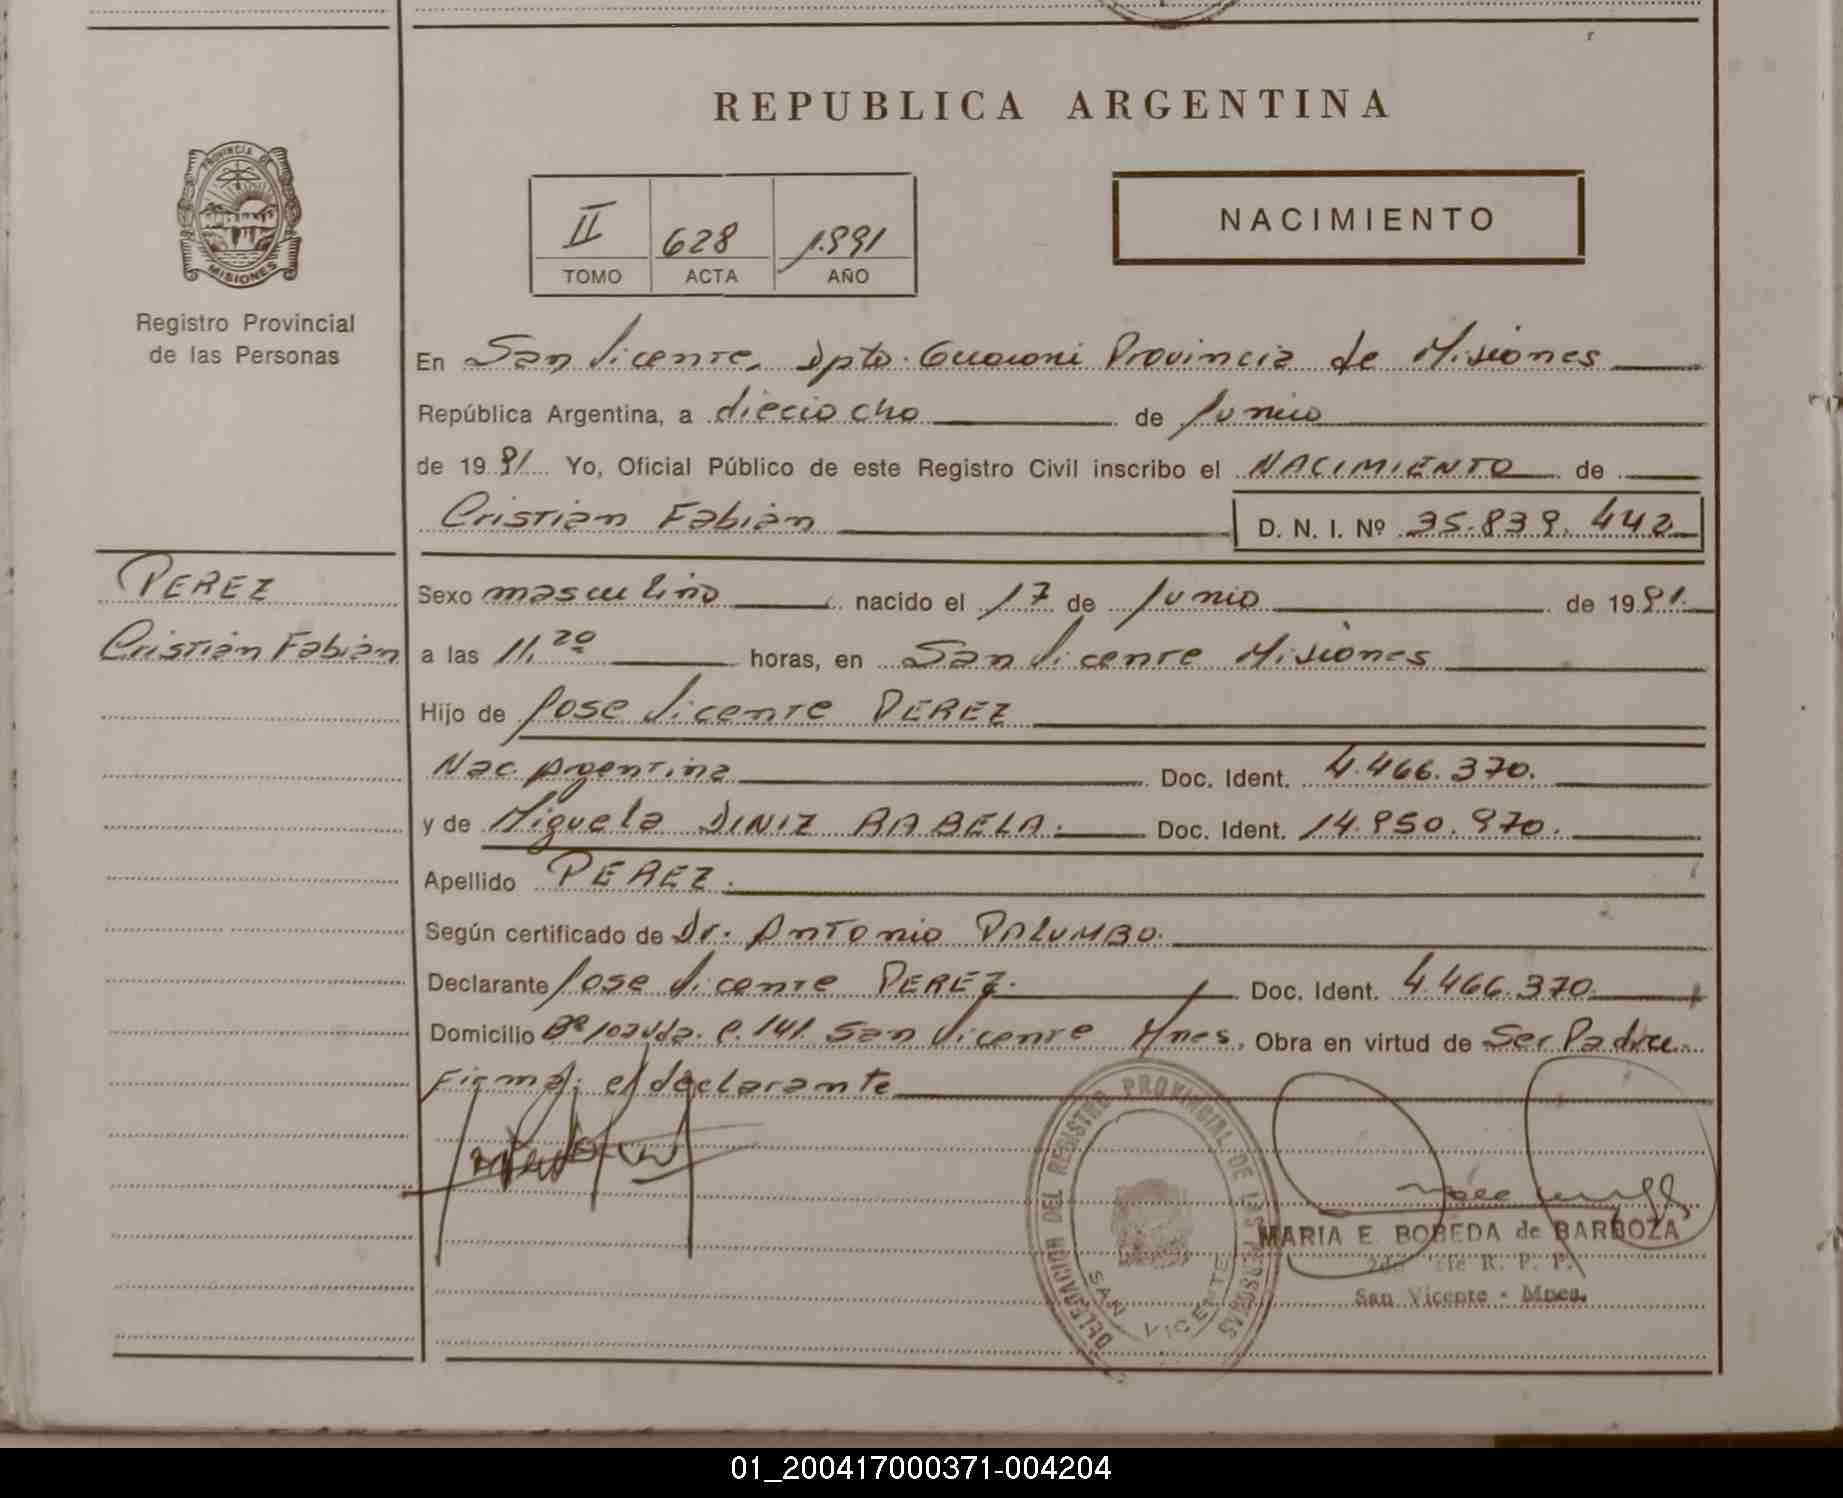 REPUBLICA ARGENTINA
PROVINCIA DE
MISIONES
Registro Provincial
de las Personas
II 628 1.991
TOMO ACTA AÑO
NACIMIENTO
En San Vicente, Dpto. Guarani Provincia de Misiones
República Argentina, a dieciocho de Junio
de 1991 Yo, Oficial Público de este Registro Civil inscribo el NACIMIENTO de
Cristian Fabian D. N. I. Nº 35.839.442
PEREZ
Cristian Fabian
Sexo masculino nacido el 17 de Junio de 1991.
a las 11,20 horas, en San Vicente Misiones
Hijo de Jose Vicente PEREZ
Nac. Argentina Doc. Ident. 4.466.370.
y de Miguela DINIZ RABELA. Doc. Ident. 14.950.970.
Apellido PEREZ.
Según certificado de Dr. Antonio PALUMBO.
Declarante Jose Vicente PEREZ. Doc. Ident. 4.466.370
Domicilio Bº C. 141. San Vicente Mnes. Obra en virtud de Ser Padre.
Firma: el declarante
DELEGACION DEL REGISTRO PROVINCIAL DE LAS PERSONAS
SAN VICENTE
MARIA E BOBEDA de BARBOZA
R. P. P.
San Vicente - Mnes.
01_200417000371-004204